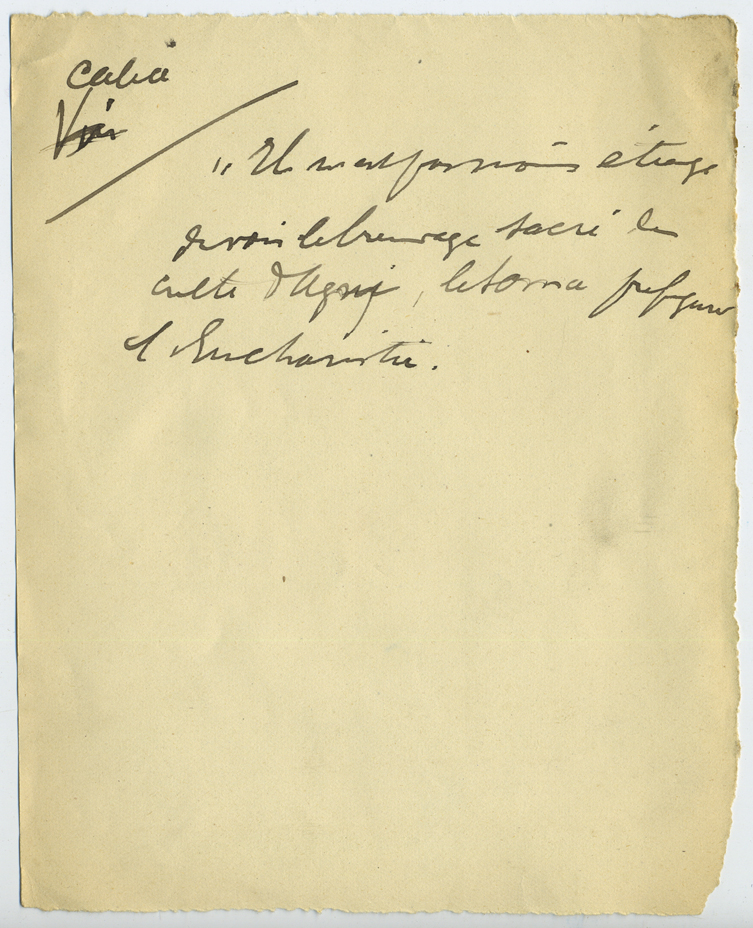 Calice
Vin
„ Il n'est pas moins étrange
de voir le breuvage sacré du
culte d'Agni, le soma préfigurer
l'Eucharistie.